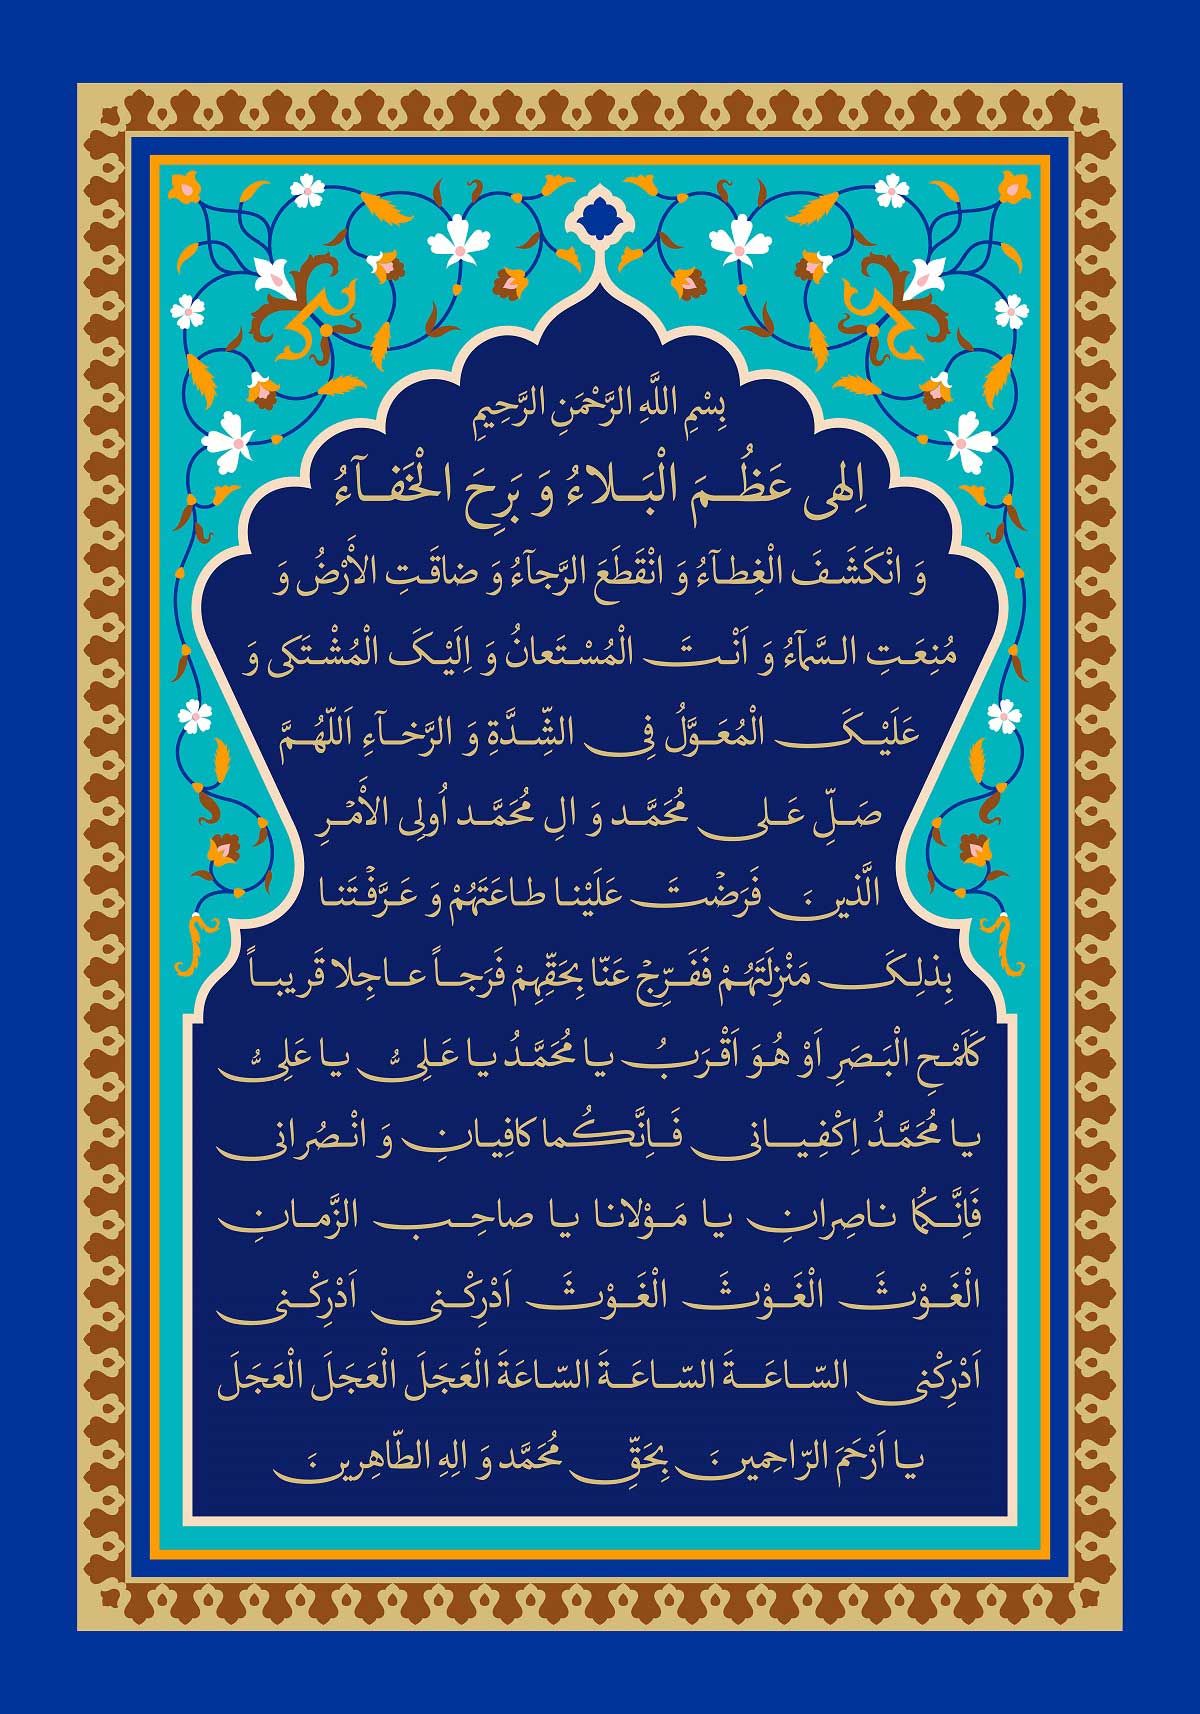 بِسْمِ اللَّهِ الرَّحْمَنِ الرَّحِيمِ
اِلهى عَظُمَ الْبَلاءُ وَ بَرِحَ الْخَفآءُ
وَ انْكَشَفَ الْغِطآءُ وَ انْقَطَعَ الرَّجآءُ وَ ضاقَتِ الأَرْضُ وَ
مُنِعَتِ السَّمآءُ وَ اَنْتَ الْمُسْتَعانُ وَ اِلَيْكَ الْمُشْتَكى وَ
عَلَيْكَ الْمُعَوَّلُ فِى الشِّدَّةِ وَ الرَّخآءِ اَللّهُمَّ
صَلِّ عَلى مُحَمَّد وَ الِ مُحَمَّد اُولِى الأَمْرِ
الَّذينَ فَرَضْتَ عَلَيْنا طاعَتَهُمْ وَ عَرَّفْتَنا
بِذلِكَ مَنْزِلَتَهُمْ فَفَرِّجْ عَنّا بِحَقِّهِمْ فَرَجاً عاجِلا قَريباً
كَلَمْحِ الْبَصَرِ اَوْ هُوَ اَقْرَبُ يا مُحَمَّدُ يا عَلِىُّ يا عَلِىُّ
يا مُحَمَّدُ اِكْفِيانى فَاِنَّكُما كافِيانِ وَ انْصُرانى
فَاِنَّكُما ناصِرانِ يا مَوْلانا يا صاحِب الزَّمانِ
الْغَوْثَ الْغَوْثَ الْغَوْثَ اَدْرِكْنى اَدْرِكْنى
اَدْرِكْنى السّاعَةَ السّاعَةَ السّاعَةَ الْعَجَلَ الْعَجَلَ الْعَجَلَ
يا اَرْحَمَ الرّاحِمينَ بِحَقِّ مُحَمَّد وَ الِهِ الطّاهِرينَ